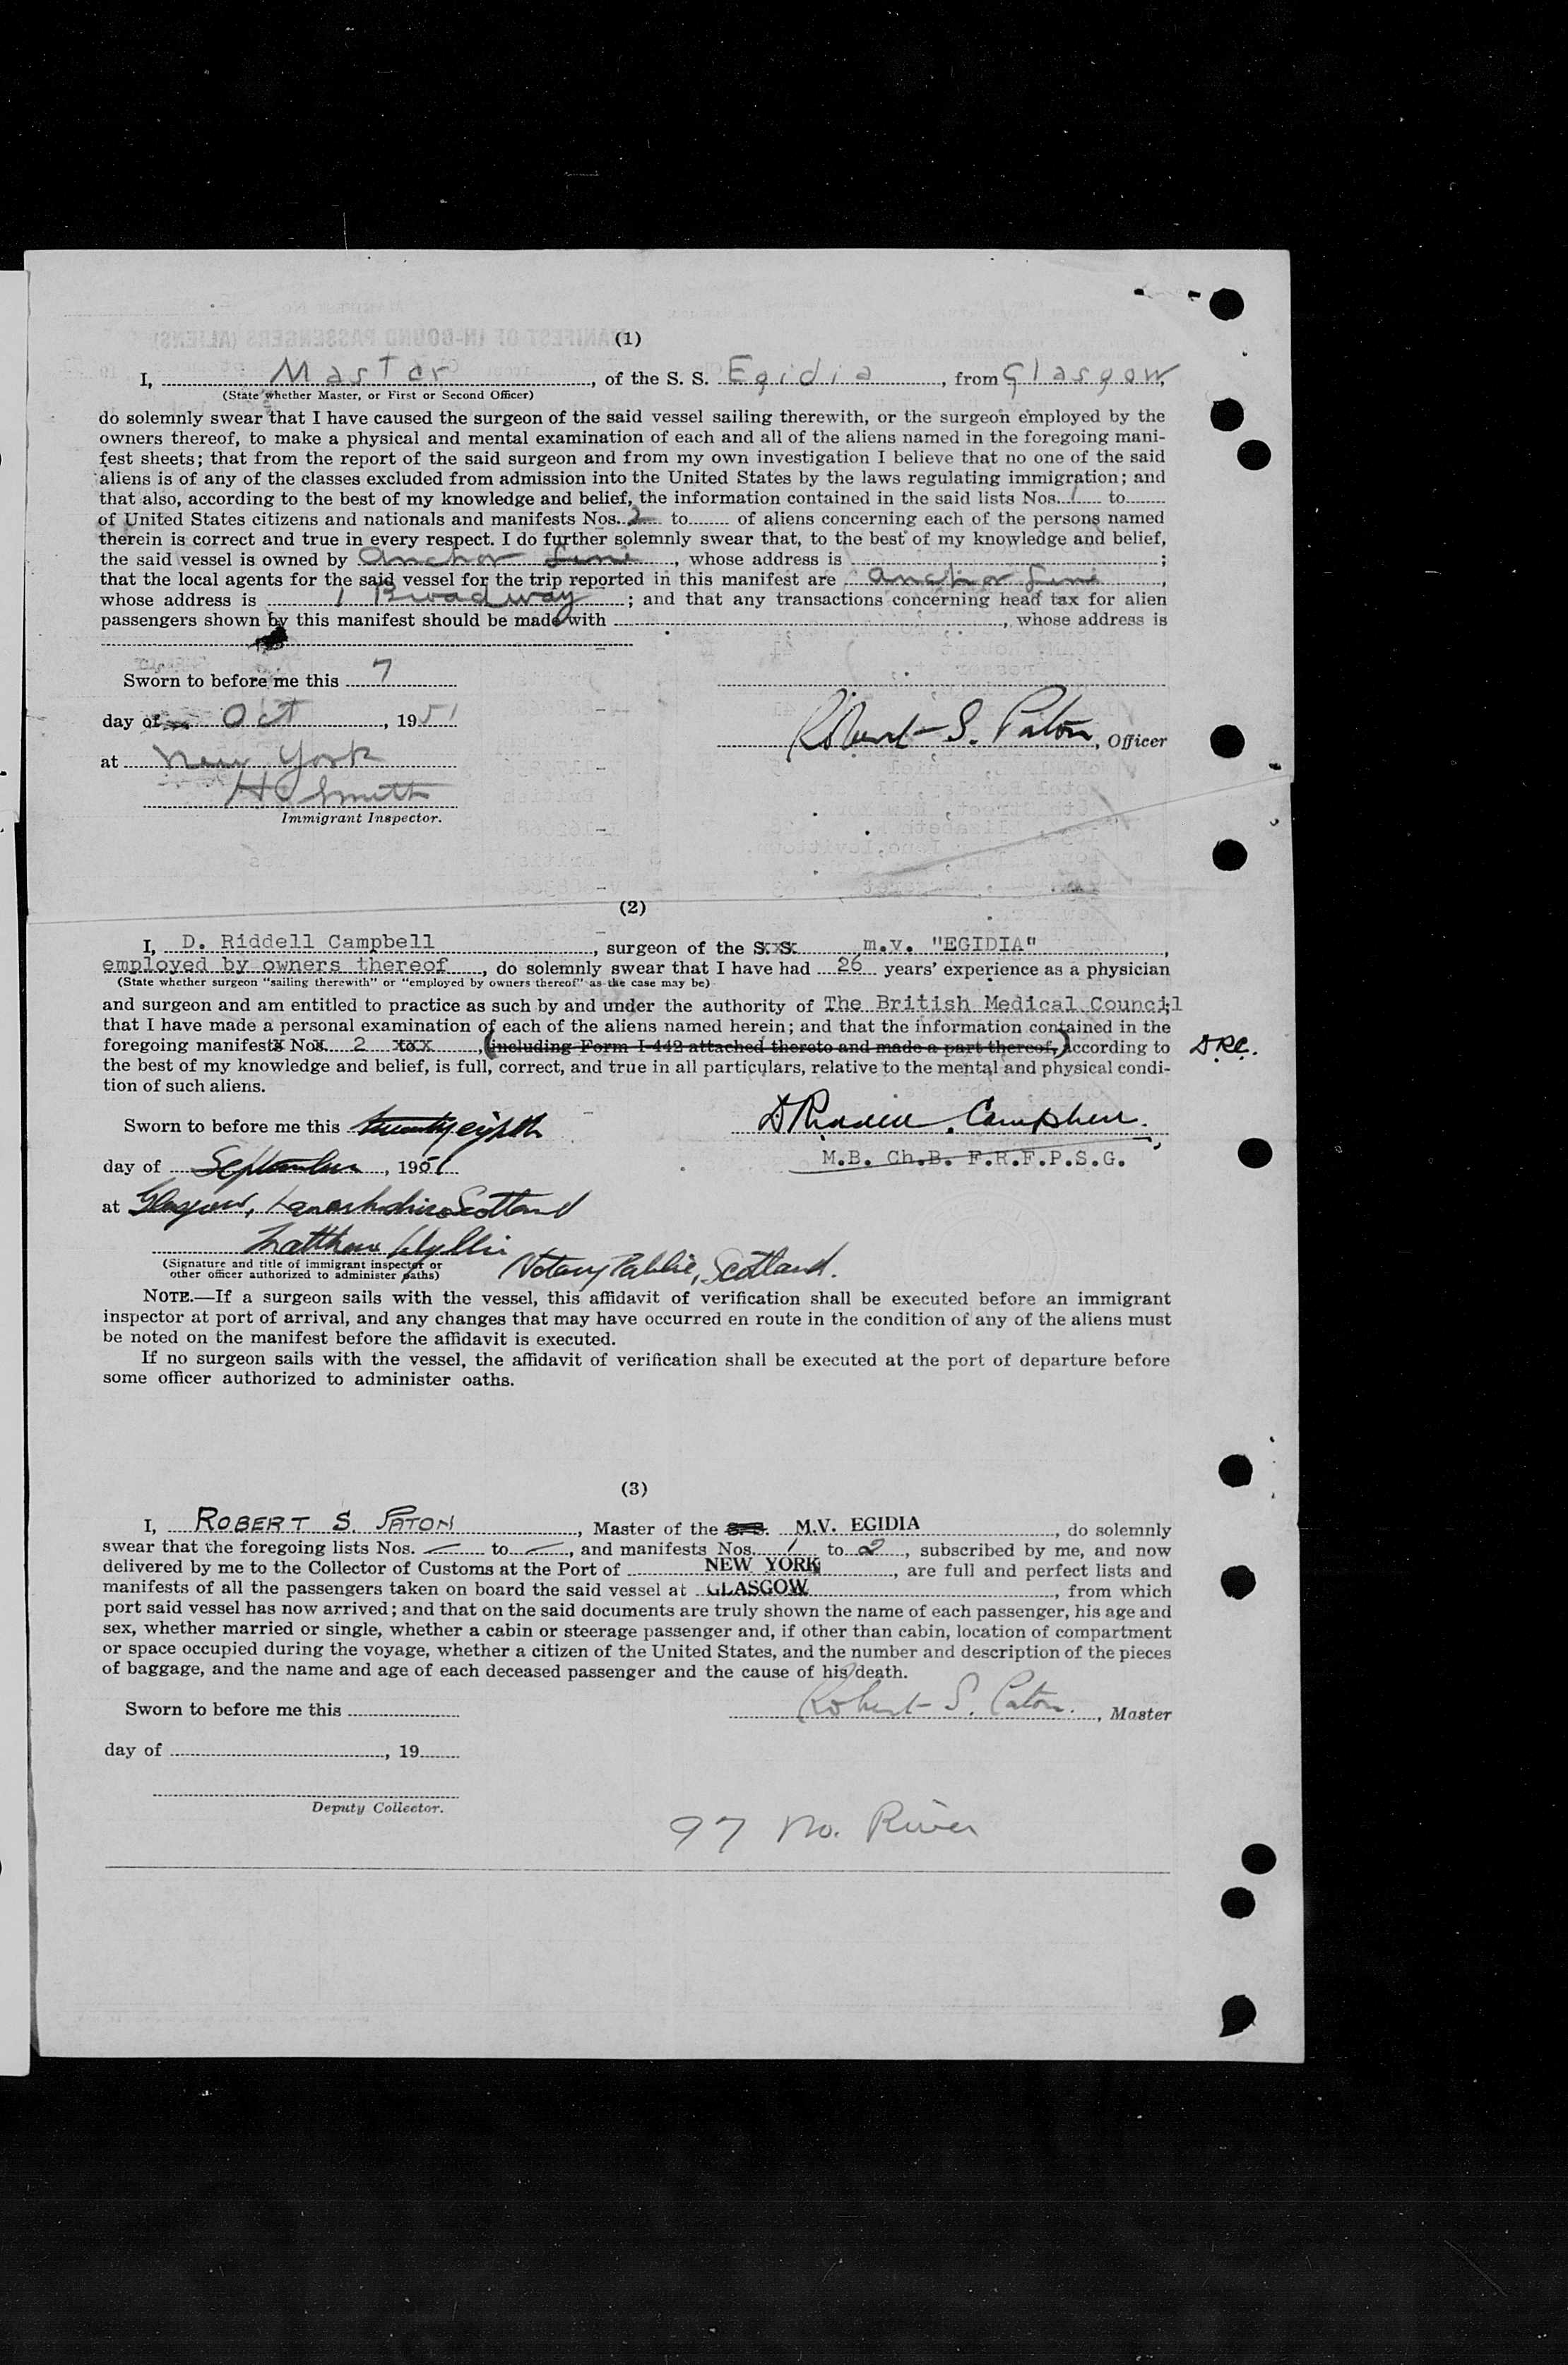 (1)
I, Master, of the S. S. Egidia, from Glasgow,
(State whether Master, or First or Second Officer)
do solemnly swear that I have caused the surgeon of the said vessel sailing therewith, or the surgeon employed by the
owners thereof, to make a physical and mental examination of each and all of the aliens named in the foregoing mani-
fest sheets; that from the report of the said surgeon and from my own investigation I believe that no one of the said
aliens is of any of the classes excluded from admission into the United States by the laws regulating immigration; and
that also, according to the best of my knowledge and belief, the information contained in the said lists Nos. 1 to
of United States citizens and nationals and manifests Nos. 2 to of aliens concerning each of the persons named
therein is correct and true in every respect. I do further solemnly swear that, to the best of my knowledge and belief,
the said vessel is owned by Anchor Line, whose address is ;
that the local agents for the said vessel for the trip reported in this manifest are Anchor Line,
whose address is 1 Broadway; and that any transactions concerning head tax for alien
passengers shown by this manifest should be made with , whose address is
Sworn to before me this 7
day of Oct, 1951
Robert S. Paton, Officer
at New York
H Smith
Immigrant Inspector.
(2)
I, D. Riddell Campbell, surgeon of the S. S. m.v. "EGIDIA",
employed by owners thereof, do solemnly swear that I have had 26 years' experience as a physician
(State whether surgeon "sailing therewith" or "employed by owners thereof" as the case may be)
and surgeon and am entitled to practice as such by and under the authority of The British Medical Council;
that I have made a personal examination of each of the aliens named herein; and that the information contained in the
foregoing manifests Nos. 2 to , (including Form I-442 attached thereto and made a part thereof,) according to D.R.C.
the best of my knowledge and belief, is full, correct, and true in all particulars, relative to the mental and physical condi-
tion of such aliens.
Sworn to before me this twenty eighth
D Riddell Campbell.
day of September, 1951
M.B. Ch.B. F.R.F.P.S.G.
at Glasgow, Lanarkshire Scotland
Matthew Wyllie
Notary Public, Scotland.
(Signature and title of immigrant inspector or
other officer authorized to administer oaths)
NOTE.—If a surgeon sails with the vessel, this affidavit of verification shall be executed before an immigrant
inspector at port of arrival, and any changes that may have occurred en route in the condition of any of the aliens must
be noted on the manifest before the affidavit is executed.
If no surgeon sails with the vessel, the affidavit of verification shall be executed at the port of departure before
some officer authorized to administer oaths.
(3)
I, ROBERT S. PATON, Master of the S.S. M.V. EGIDIA, do solemnly
swear that the foregoing lists Nos. — to —, and manifests Nos. 1 to 2, subscribed by me, and now
delivered by me to the Collector of Customs at the Port of NEW YORK, are full and perfect lists and
manifests of all the passengers taken on board the said vessel at GLASGOW, from which
port said vessel has now arrived; and that on the said documents are truly shown the name of each passenger, his age and
sex, whether married or single, whether a cabin or steerage passenger and, if other than cabin, location of compartment
or space occupied during the voyage, whether a citizen of the United States, and the number and description of the pieces
of baggage, and the name and age of each deceased passenger and the cause of his death.
Sworn to before me this
Robert S. Paton., Master
day of , 19
Deputy Collector.
97 No. River